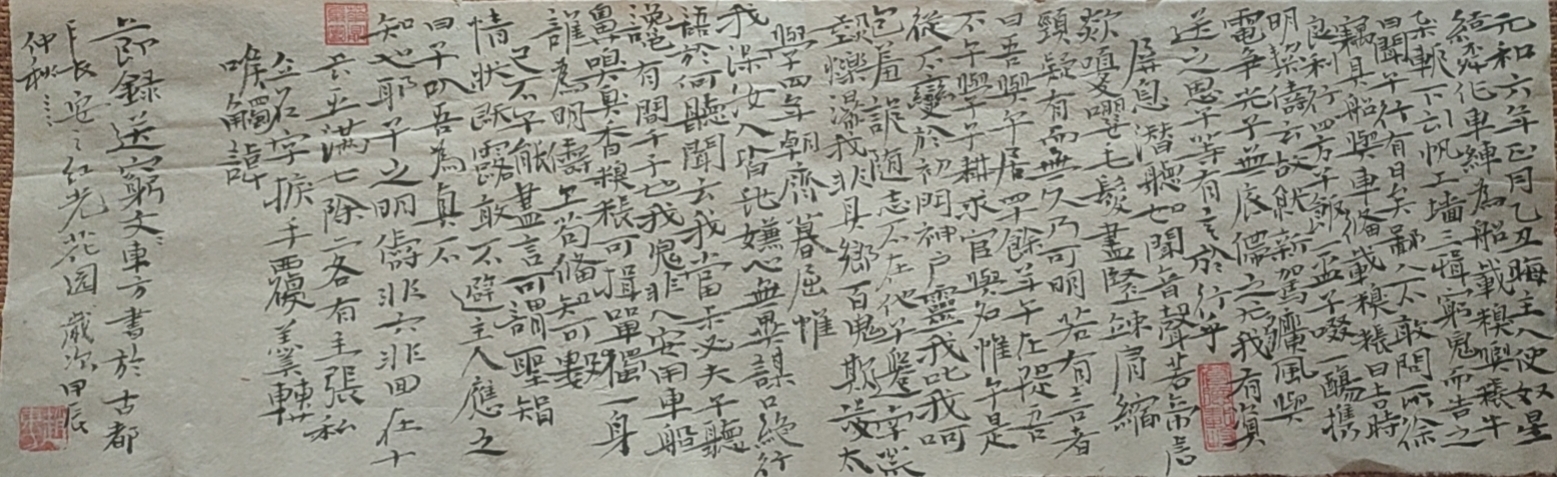 元和六年正月乙丑晦主人使奴星
結柳作車縛草為船載糗輿粻牛
繫軛下引帆上墻三揖窮鬼而告之
曰聞子行有日矣鄙人不敢問所徐
竊具船與車備載糗粻日吉時
良利行四方子飯一盂子啜一觴攜
明挈儔去故就新駕彍風與
電爭光子無底滯之尤我有資
送之恩子等有意於行乎
屏息潛聽如聞音聲若啼若
欻嚘嚶毛髮盡竪竦肩縮
頸疑有而無久乃可明若有言者
曰吾與子居四十餘年子在提吾
不子與子子耕求官與名惟子是
從不變於初門神戶靈我叱我呵
包羞詭隨志不在他子遷南荒
熱爍濕我非其鄉百鬼欺凌太
學四年朝齏暮屈惟
我保汝人皆汝嫌心無異謀口絕行
語於何聽聞云我當去必夫子聽
讒有間于子也我鬼非人安用車船
鼻嗅臭香糗粻可捐單獨一身
誰為朋儔子苟備知可數
已不子能盡言可謂聖智
情狀既露敢不避主人應之
曰子以吾為真不
知也耶子之朋儔非六非四在十
去五滿七除二各有主張私
立名字捩手覆羹轉
喉觸諱
節錄送窮文東方書於古都
長安之紅光花園歲次甲辰
仲秋